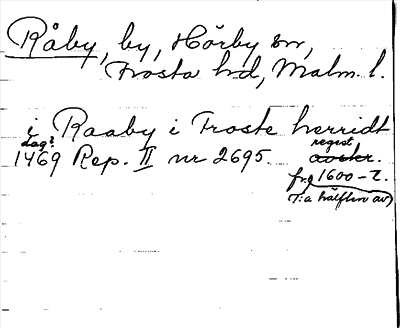 Råby, by, Hörby sn,
Frosta hd, Malm. l.
i Raaby i Froste herridt
dag?
1469 Rep. II nr 2695. regist
avskr.
frg 1600-t.
(1:a hälften av)